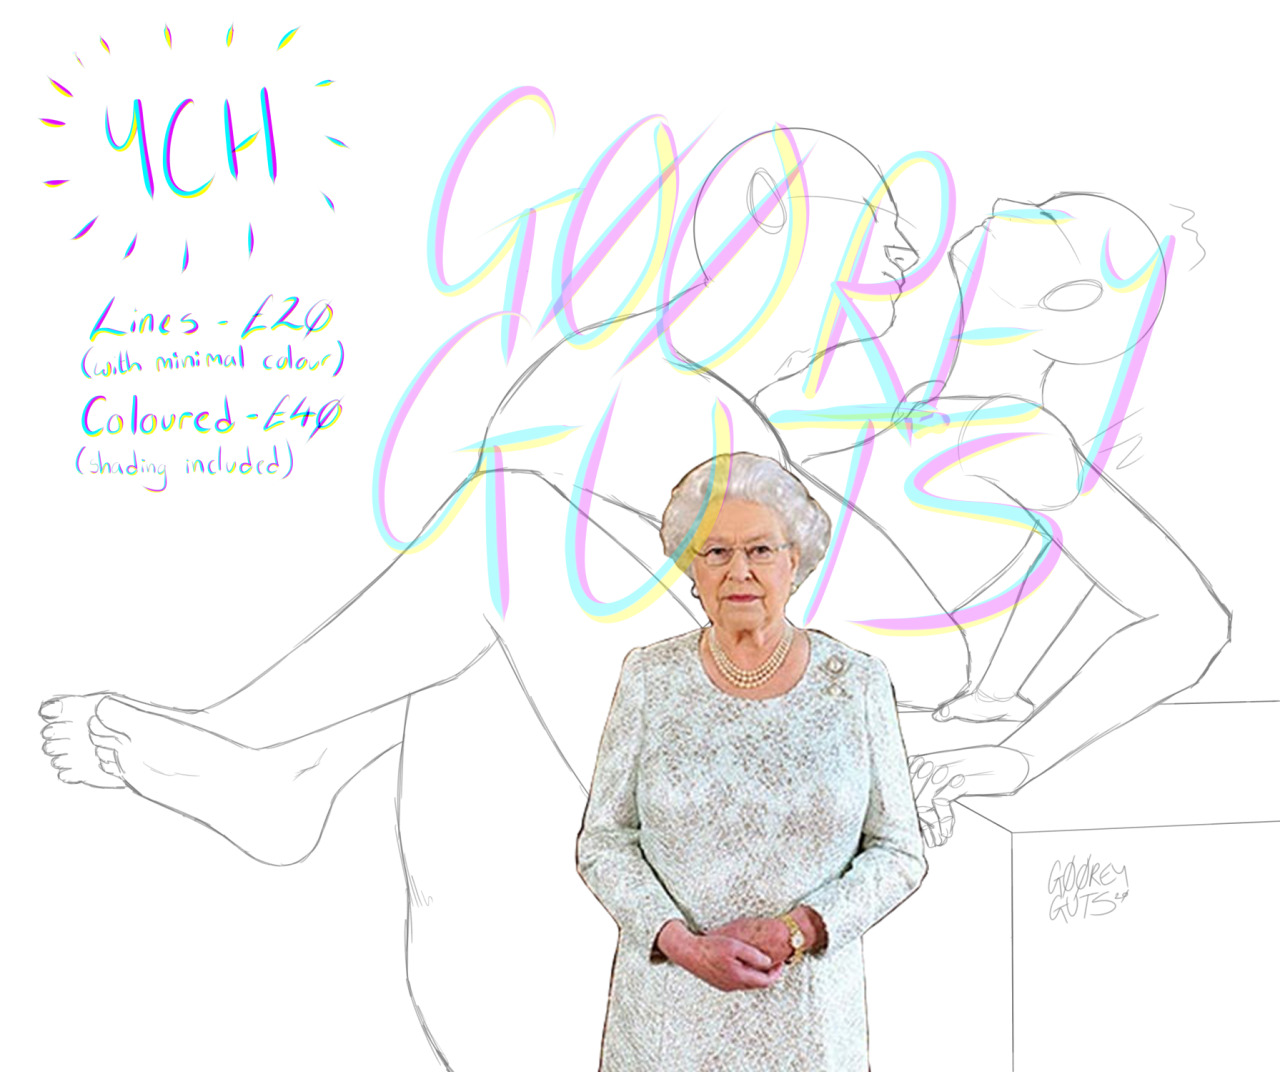 YCH
Lines - £20
(with minimal colour)
Coloured - £40
(shading included)
GØØREY
GUTS
GØØREY
GUTS 20